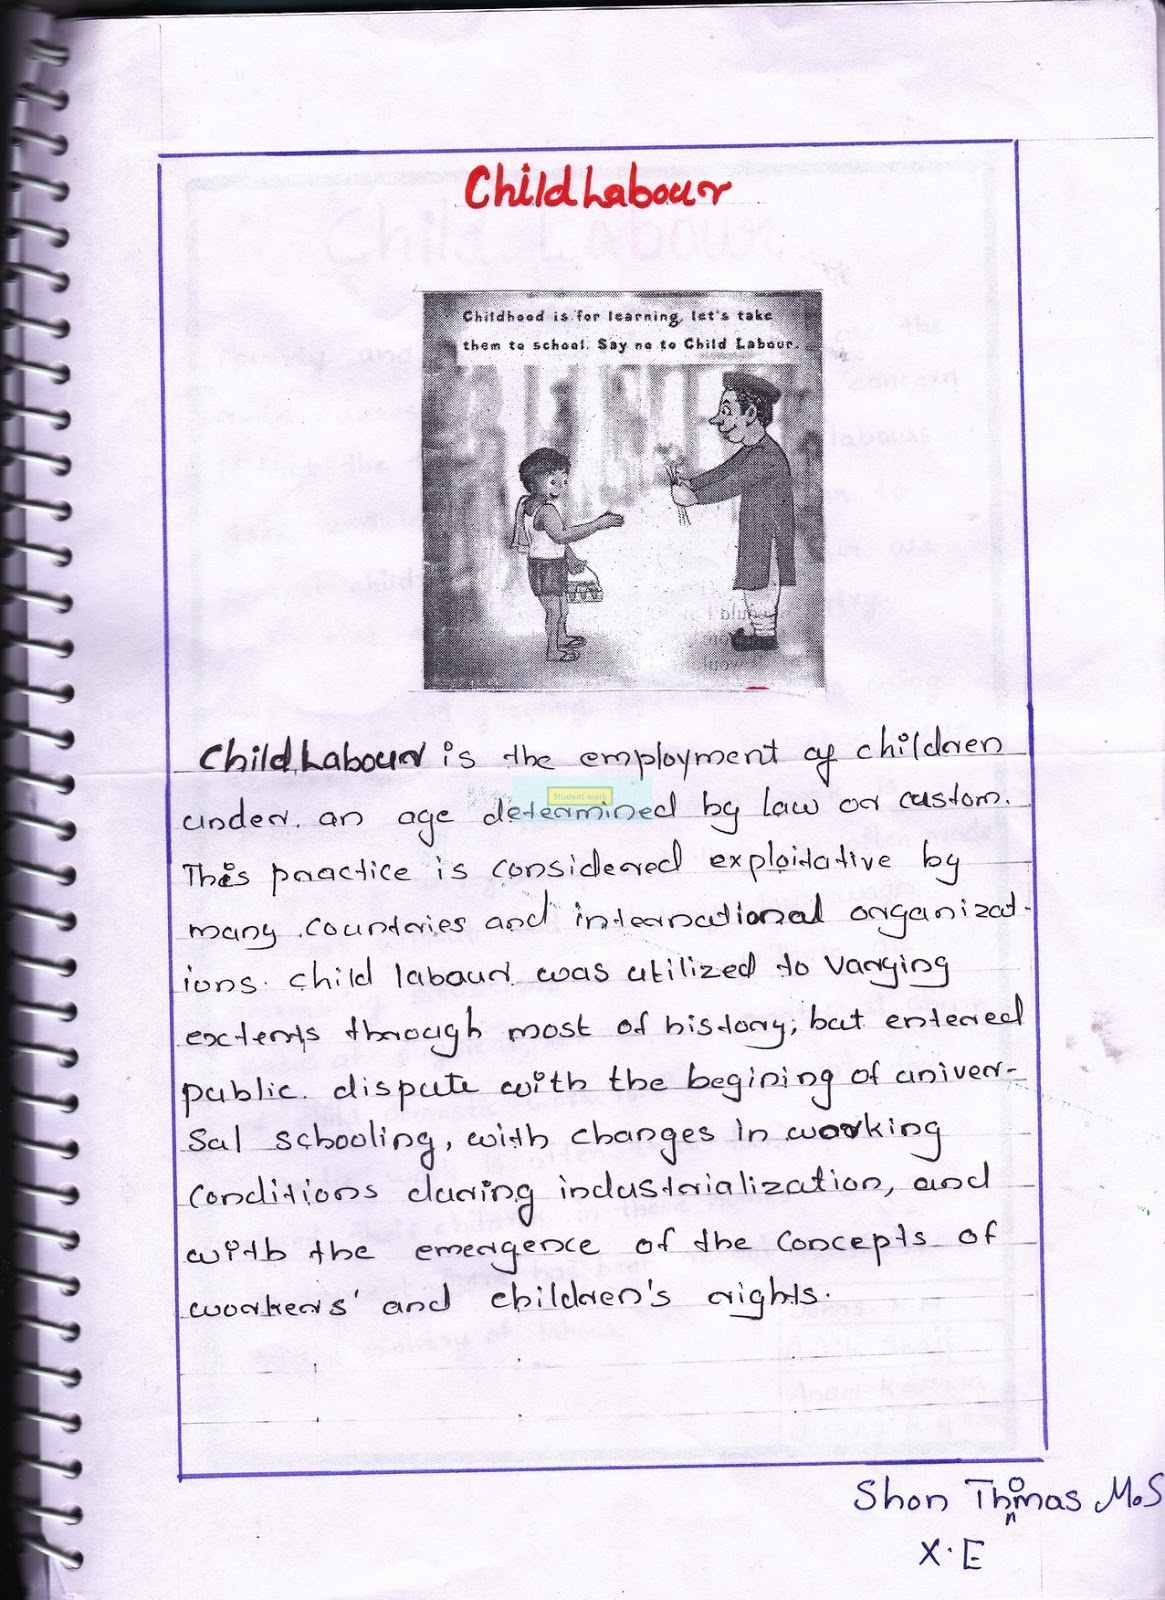 Child Labour
Childhood is for learning, let's take
them to school. Say no to Child Labour.
Child Labour is the employment of children
under. an age determined by law or custom.
Student work
This practice is considered exploitative by
many countries and international organizat-
ions. child labour was utilized to varying
extents through most of history; but entered
public. dispute with the begining of univer-
sal schooling, with changes in working
conditions during industrialization, and
with the emergence of the concepts of
workers' and children's rights.
Shon Thomas M.S
X.E